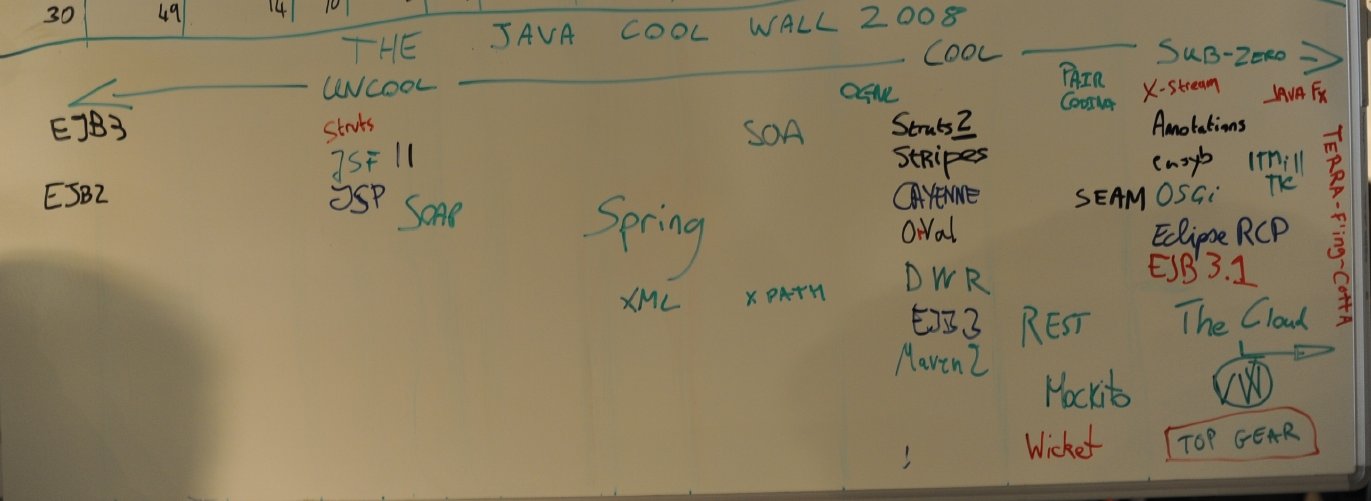 30 49 14 10
THE JAVA COOL WALL 2008
UNCOOL COOL SUB-ZERO
EJB3
EJB2
Struts
JSF 11
JSP
SOAP
Spring
XML
SOA
X PATH
OGNL
Struts2
Stripes
CAYENNE
OVal
DWR
EJB3
Maven2
!
PAIR
CODING
SEAM
REST
Mockito
Wicket
X-Stream
Annotations
easyb
OSGi
Eclipse RCP
EJB 3.1
The Cloud
VW
TOP GEAR
JAVA FX
ITMill
TK
TERRA-F'ing-CottA